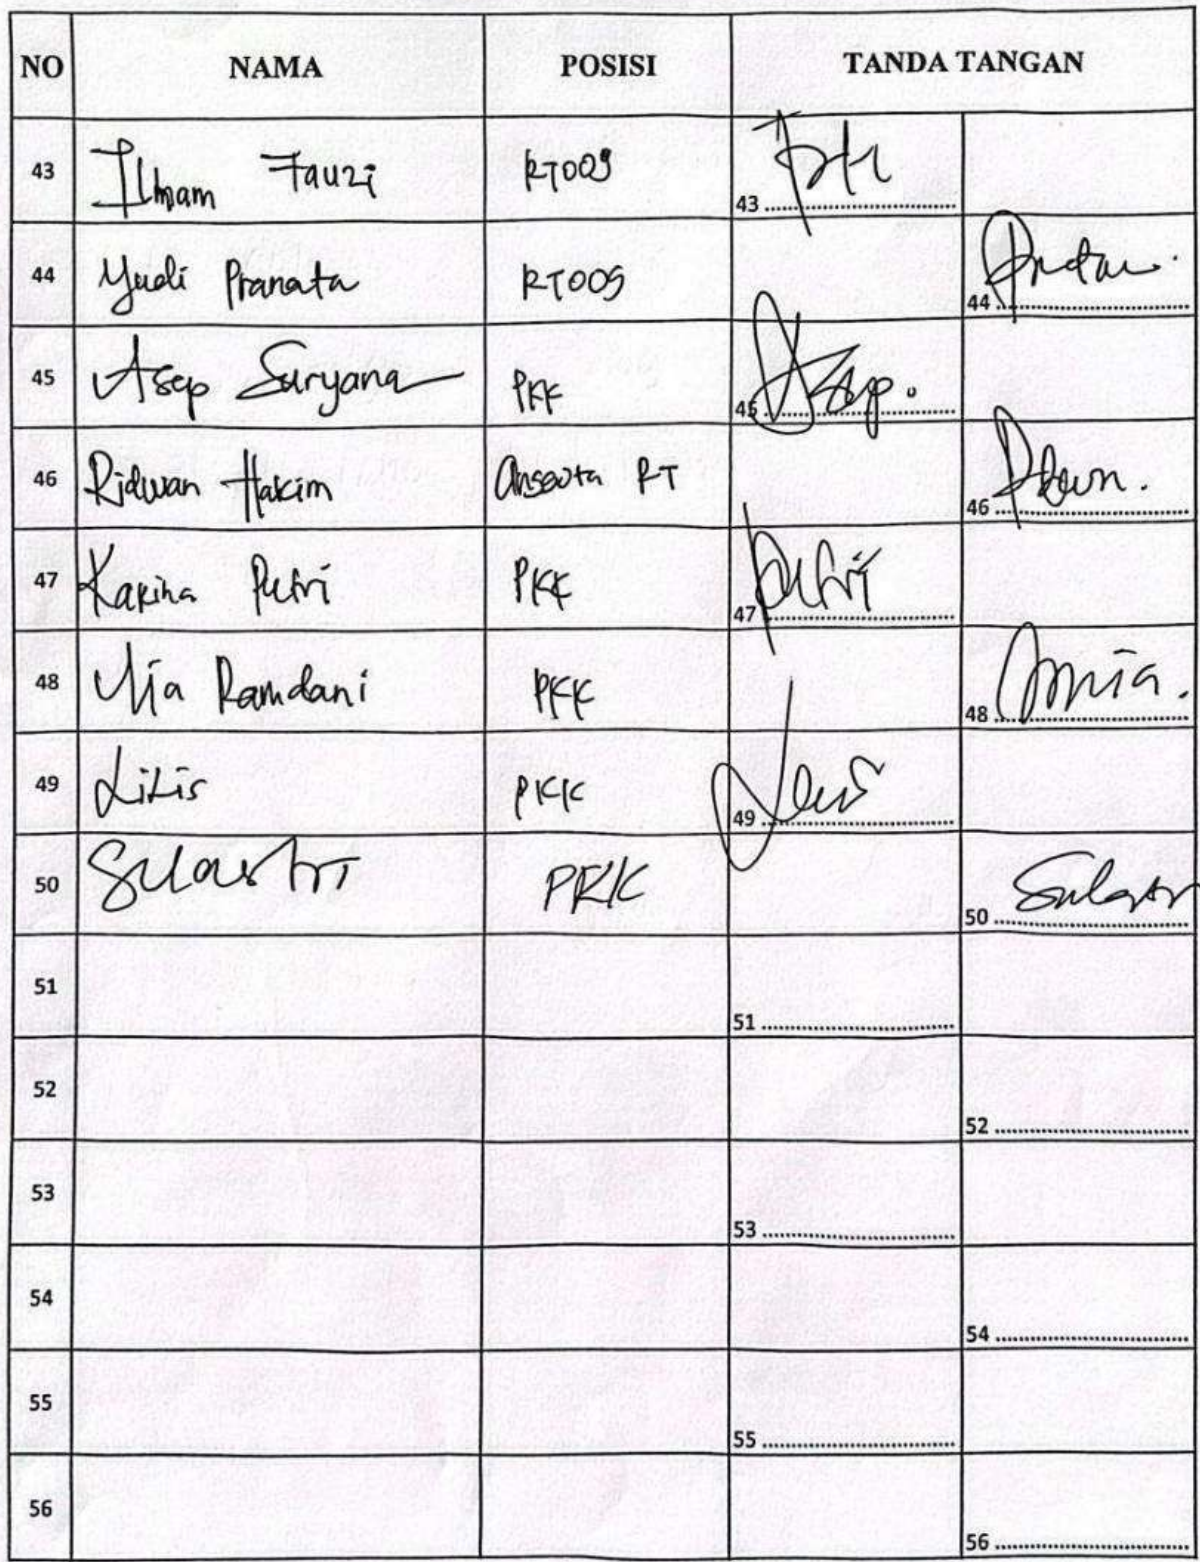 NO NAMA POSISI TANDA TANGAN
43 Ilham Fauzi RT009 43
44 Yudi Pranata RT009 44
45 Asep Suryana PKK 45 Asep.
46 Ridwan Hakim Anggota RT 46
47 Karina Putri PKK 47 Putri
48 Mia Ramdani PKK 48 mia.
49 Lilis PKK 49
50 Sulastri PKK 50
51 51
52 52
53 53
54 54
55 55
56 56